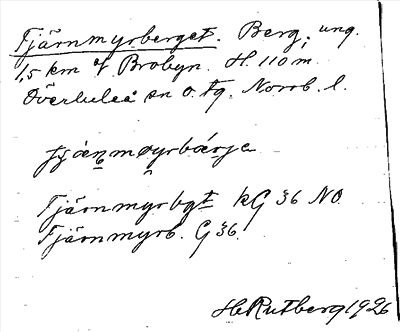 Tjärnmyrberget. Berg, ung.
1,5 km af Brobyn. H. 110 m.
Överluleå sn o. tg. Norrb. l.
tjä̀rnmøyrbärje
Tjärnmyrbgt kG 36 NO
Tjärnmyrb. G 36.
H. Rutberg 1926